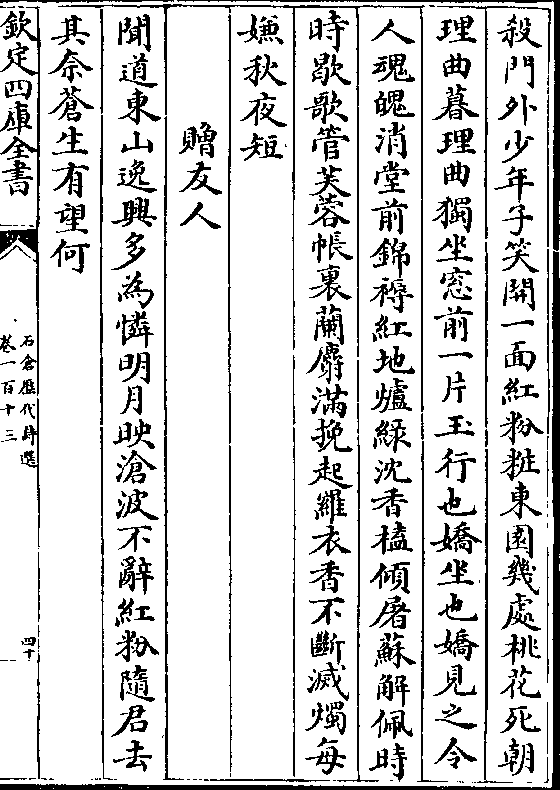 殺門外少年子笑開一面紅粉粧東園幾處桃花死朝
理曲暮理曲獨坐窓前一片玉行也嬌坐也嬌見之令
人魂魄消堂前錦褥紅地爐綠沈香榼傾屠蘇解佩時
時歇歌管芙蓉帳裏蘭麝滿挽起羅衣香不斷滅燭每
嫌秋夜短
贈友人
聞道東山逸興多為憐明月映滄波不辭紅粉隨君去
其奈蒼生有望何
欽定四庫全書
石倉歷代詩選
卷一百十三
四十